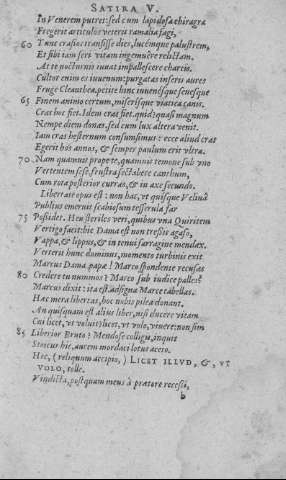 SATIRA V.
In Venerem putres: sed cum lapidosa chiragra
Fregerit articulos veteris ramalia fagi,
60 Tunc crassos transisse dies, lucémque palustrem,
Et sibi iam seri vitam ingemuêre relictam.
At te nocturnis iuuat impallescere chartis.
Cultor enim es iuuenum: purgatas inseris aures
Fruge Cleanthea. petite hinc iuuenésque senésque
65 Finem animo certum, miserísque viatica canis.
Cras hoc fiet. Idem cras fiet. quid? quasi magnum
Nempe diem donas. sed cum lux altera venit,
Iam cras hesternum consumsimus: ecce aliud cras
Egerit hos annos, & semper paulum erit vltra.
70 Nam quamuis prope te, quamuis temone sub vno
Vertentem sese, frustra sectabere canthum,
Cum rota posterior curras, & in axe secundo.
Libertate opus est: non hac, vt quisque Velina
Publius emeruit scabiosum tesserula far
75 Possidet. Heu steriles veri, quibus vna Quiritem
Vertigo facit: hic Dama est non tressis agaso,
Vappa, & lippus, & in tenui farragine mendax.
Verterit hunc dominus, momento turbinis exit
Marcus Dama. papæ! Marco spondente recusas
80 Credere tu nummos? Marco sub iudice palles?
Marcus dixit: ita est. adsigna Marce tabellas.
Hæc mera libertas, hoc nobis pilea donant.
An quisquam est alius liber, nisi ducere vitam
Cui licet, vt voluit? licet, vt volo, viuere: non sim
85 Liberior Bruto? Mendose colligis, inquit
Stoicus hic, aurem mordaci lotus aceto.
Hæc, (reliquum accipio,) LICET ILLVD, &, VT
VOLO, tolle.
Vindicta, postquam meus à prætore recessi,
b